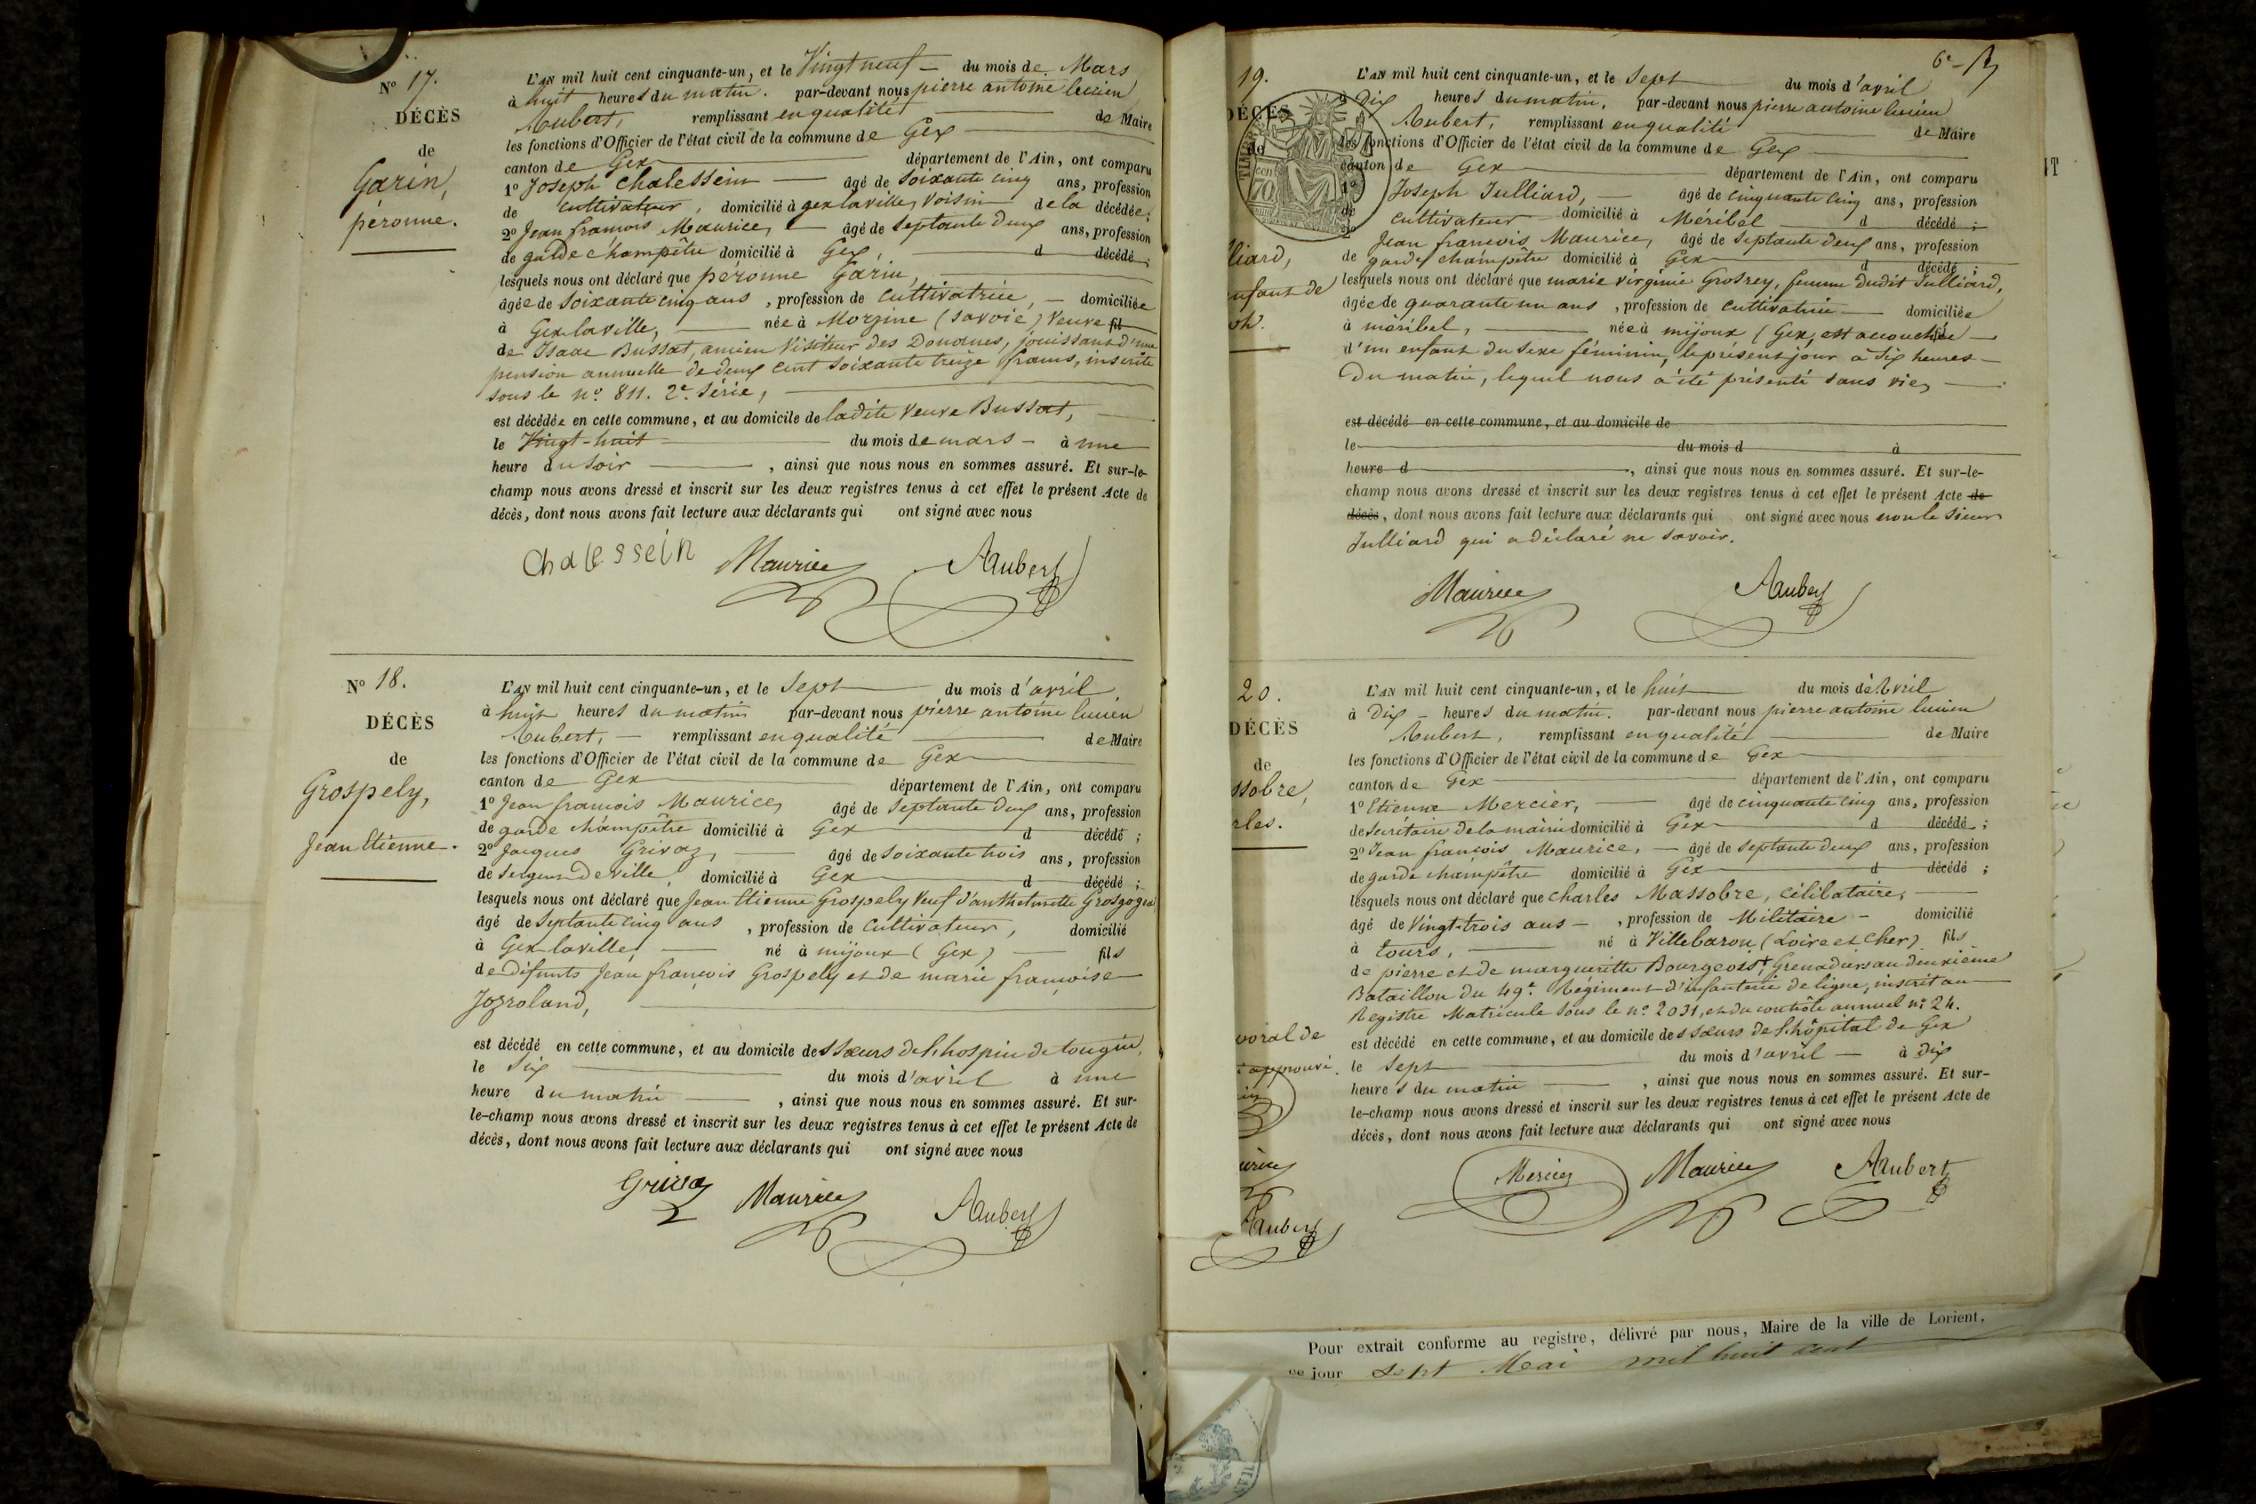 Nº 17.
DÉCÈS
de
Garin,
péronne.
L'AN mil huit cent cinquante-un, et le Vingt neuf — du mois de Mars
à huit heures du matin. par-devant nous pierre antoine lucien
Aubert, remplissant en qualité de Maire
les fonctions d'Officier de l'état civil de la commune de Gex
canton de Gex département de l'Ain, ont comparu
1º Joseph Chalessein — âgé de soixante cinq ans, profession
de cultivateur, domicilié à gex la ville, voisin de la décédée;
2º Jean francois Maurice, — âgé de septante deux ans, profession
de garde champêtre domicilié à Gex, d décédé;
lesquels nous ont déclaré que péronne Garin,
âgée de soixante cinq ans, profession de cultivatrice, — domiciliée
à Gex la ville, — née à Morzine (savoie) Veuve fil
de Isaac Bussat, ancien Visiteur des Douanes, jouissant d'une
pension annuelle de deux cent soixante treize francs, inscrite
sous le nº 811. 2e série,
est décédée en cette commune, et au domicile de ladite Veuve Bussat,
le Vingt-huit du mois de mars — à une
heure du soir, ainsi que nous nous en sommes assuré. Et sur-le-
champ nous avons dressé et inscrit sur les deux registres tenus à cet effet le présent Acte de
décès, dont nous avons fait lecture aux déclarants qui ont signé avec nous
Chalessein Maurice Aubert
Nº 18.
DÉCÈS
de
Grospely,
Jean Etienne.
L'AN mil huit cent cinquante-un, et le Sept du mois d'avril.
à huit heures du matin par-devant nous pierre antoine lucien
Aubert, — remplissant en qualité de Maire
les fonctions d'Officier de l'état civil de la commune de Gex
canton de Gex département de l'Ain, ont comparu
1º Jean francois Maurice, âgé de septante deux ans, profession
de garde champêtre domicilié à Gex d décédé;
2º Jacques Grivaz, — âgé de soixante trois ans, profession
de sergent de ville, domicilié à Gex d décédé;
lesquels nous ont déclaré que Jean Etienne Grospely Veuf d'anthelmette
âgé de septante cinq ans, profession de cultivateur, domicilié
à Gex la ville, — né à mijoux (Gex) — fils
de défunts Jean françois Grospely et de marie françoise
est décédé en cette commune, et au domicile des sœurs de l'hospice de tougin,
le six du mois d'avril à une
heure du matin, ainsi que nous nous en sommes assuré. Et sur-
le-champ nous avons dressé et inscrit sur les deux registres tenus à cet effet le présent Acte de
décès, dont nous avons fait lecture aux déclarants qui ont signé avec nous
Grivaz Maurice Aubert
6e
19.
DÉCÈS
de
lliard,
nfant de
ph.
L'AN mil huit cent cinquante-un, et le Sept du mois d'avril
à Dix heures du matin. par-devant nous pierre antoine lucien
Aubert, remplissant en qualité de Maire
les fonctions d'Officier de l'état civil de la commune de Gex
canton de Gex département de l'Ain, ont comparu
1º Joseph Julliard, — âgé de cinquante cinq ans, profession
de cultivateur domicilié à Méribel d décédé;
2º Jean francois Maurice, âgé de septante deux ans, profession
de garde champêtre domicilié à Gex d décédé;
lesquels nous ont déclaré que marie virginie Grosrey, femme dudit Julliard,
âgée de quarante un ans, profession de cultivatrice — domiciliée
à méribel, née à mijoux (Gex, est accouchée —
d'un enfant du sexe féminin, le présent jour à six heures —
du matin, lequel nous a été présenté sans vie,
est décédé en cette commune, et au domicile de
le du mois d à
heure d, ainsi que nous nous en sommes assuré. Et sur-le-
champ nous avons dressé et inscrit sur les deux registres tenus à cet effet le présent Acte de
décès, dont nous avons fait lecture aux déclarants qui ont signé avec nous non le sieur
Julliard qui a déclaré ne savoir.
Maurice Aubert
20.
DÉCÈS
de
ssobre,
rles.
L'AN mil huit cent cinquante-un, et le huit du mois d'Avril
à Dix — heures du matin. par-devant nous pierre antoine lucien
Aubert, remplissant en qualité de Maire
les fonctions d'Officier de l'état civil de la commune de Gex
canton de Gex département de l'Ain, ont comparu
1º Etienne Mercier, — âgé de cinquante cinq ans, profession
de secrétaire de la mairie domicilié à Gex d décédé;
2º Jean françois Maurice, — âgé de septante deux ans, profession
de garde champêtre domicilié à Gex d décédé;
lesquels nous ont déclaré que charles Massobre, célibataire,
âgé de vingt-trois ans —, profession de Militaire — domicilié
à tours, né à Villebarou (Loire et Cher) fils
de pierre et de margueritte Bourgeois, + Grenadier au deuxième
Bataillon du 49e Régiment d'infanterie de ligne, inscrit au
Registre Matricule sous le nº 2031, et du contrôle annuel nº 24.
est décédé en cette commune, et au domicile des sœurs de l'hôpital de Gex
le sept du mois d'avril — à dix
heures du matin, ainsi que nous nous en sommes assuré. Et sur-
le-champ nous avons dressé et inscrit sur les deux registres tenus à cet effet le présent Acte de
décès, dont nous avons fait lecture aux déclarants qui ont signé avec nous
Mercier Maurice Aubert
voral de
approuvé.
Aubert
Pour extrait conforme au registre, délivré par nous, Maire de la ville de Lorient,
ce jour sept Mai mil huit cent